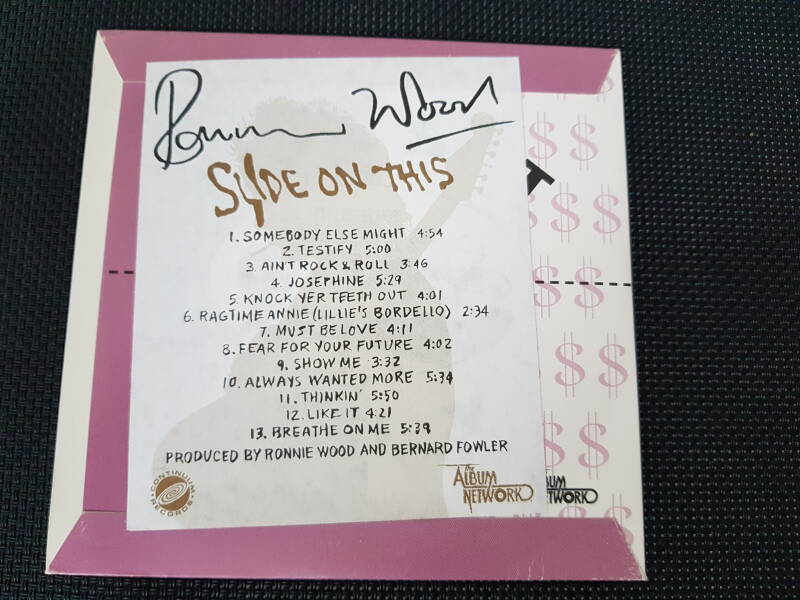 Ronnie Wood
SLIDE ON THIS
1. SOMEBODY ELSE MIGHT 4:54
2. TESTIFY 5:00
3. AIN'T ROCK & ROLL 3:46
4. JOSEPHINE 5:29
5. KNOCK YER TEETH OUT 4:01
6. RAGTIME ANNIE (LILLIE'S BORDELLO) 2:34
7. MUST BE LOVE 4:11
8. FEAR FOR YOUR FUTURE 4:02
9. SHOW ME 3:32
10. ALWAYS WANTED MORE 5:34
11. THINKIN' 5:50
12. LIKE IT 4:21
13. BREATHE ON ME 5:39
PRODUCED BY RONNIE WOOD AND BERNARD FOWLER
CONTINUUM RECORDS
the ALBUM NETWORK
BUM
TWORK